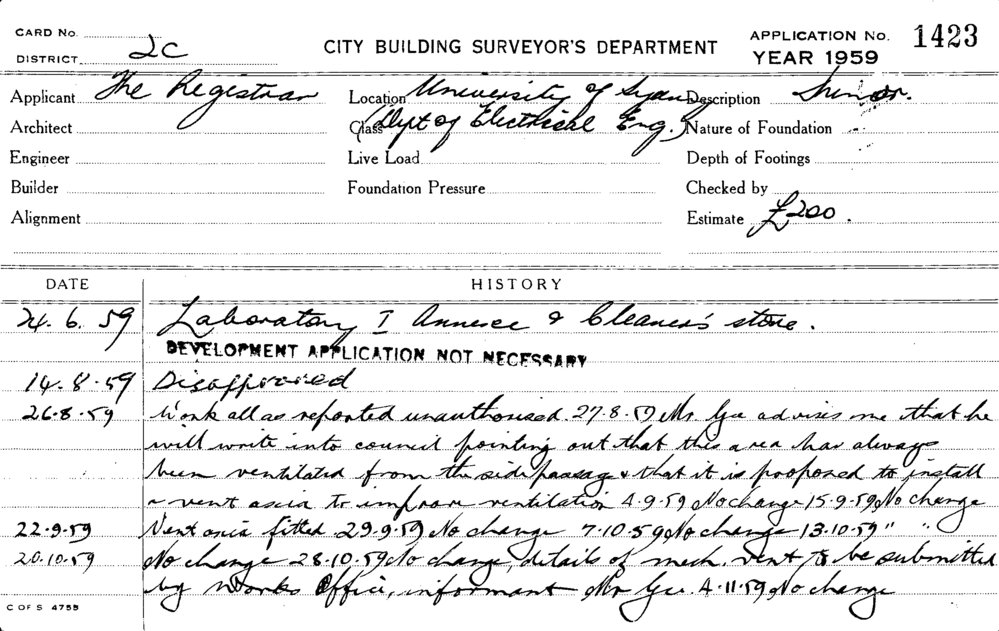 CARD No.
DISTRICT 2C
CITY BUILDING SURVEYOR'S DEPARTMENT
APPLICATION No. 1423
YEAR 1959
Applicant The Registrar
Location University of Sydney
Description Minor.
Architect
Class (Dept of Electrical Eng.)
Nature of Foundation
Engineer
Live Load
Depth of Footings
Builder
Foundation Pressure
Checked by
Alignment
Estimate £200.
DATE HISTORY
24.6.59 Laboratory I Annexe & Cleaner's store.
DEVELOPMENT APPLICATION NOT NECESSARY
14.8.59 Disapproved
26.8.59 Work all as reported unauthorised. 27.8.59 Mr. Gee advises me that he
will write into council pointing out that this area has always
been ventilated from the side passage & that it is proposed to install
a vent axia to improve ventilation 4.9.59 No change 15.9.59 No change
22.9.59 Vent axia fitted 29.9.59 No change 7.10.59 No change 13.10.59 " "
20.10.59 No change 28.10.59 No change, details of mech. vent to be submitted
by Works Office, informant Mr Gee. 4.11.59 No change
C OF S 4755